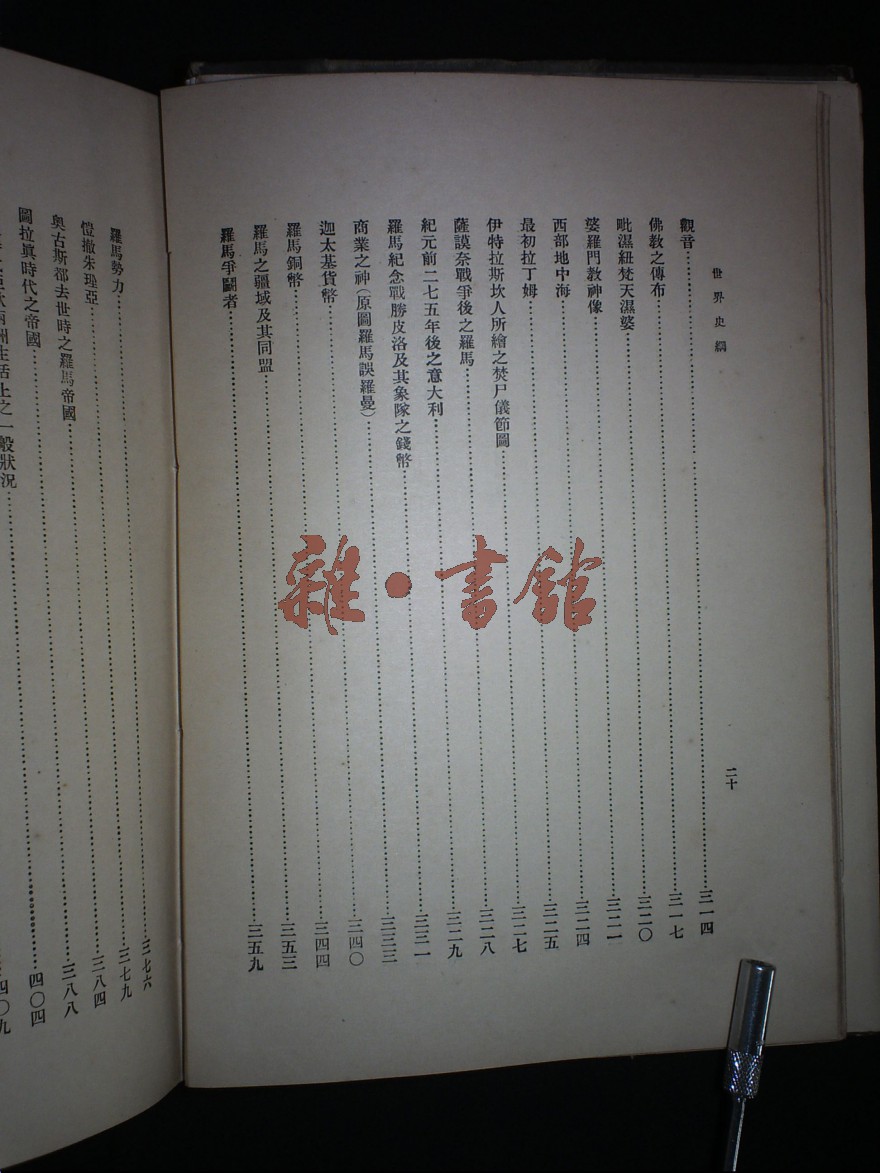 世界史綱
二十
觀音……三一四
佛教之傳布……三一七
毗濕紐梵天濕婆……三二〇
婆羅門教神像……三二一
西部地中海……三二四
最初拉丁姆……三二五
伊特拉斯坎人所繪之焚尸儀節圖……三二七
薩謨奈戰爭後之羅馬……三二八
紀元前二七五年後之意大利……三二九
羅馬紀念戰勝皮洛及其象隊之錢幣……三三一
商業之神(原圖羅馬誤羅曼)……三三三
迦太基貨幣……三四〇
羅馬銅幣……三四四
羅馬之疆域及其同盟……三五三
羅馬爭鬭者……三五九
羅馬勢力……三七六
愷撤朱理亞……三七九
奧古斯都去世時之羅馬帝國……三八四
圖拉眞時代之帝國……三八八
兩洲生活上之一般狀況……四〇四
四〇九
雜·書館